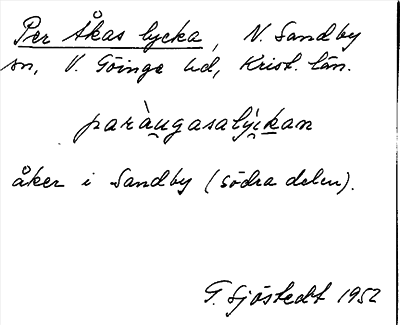 Per Åkas lycka, N. Sandby
sn, V. Göinge hd, Krist. län.
paràu̯gasalýi̯kan
åker i Sandby (södra delen).
G. Sjöstedt 1952